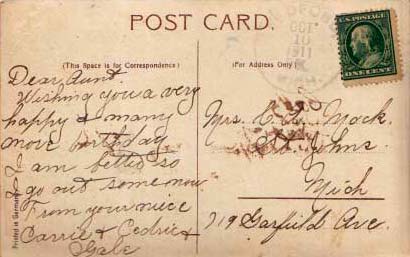 POST CARD.
(This Space is for Correspondence)
Dear Aunt.
Wishing you a very
happy & many
more birthday
I am better so
go out some now
From your niece
Carrie & Cedric &
Gale
Printed in Germany
(For Address Only)
OCT
10
1911
U.S. POSTAGE
ONE CENT
Mrs. C. Mock.
St. Johns.
Mich
719 Garfield Ave.